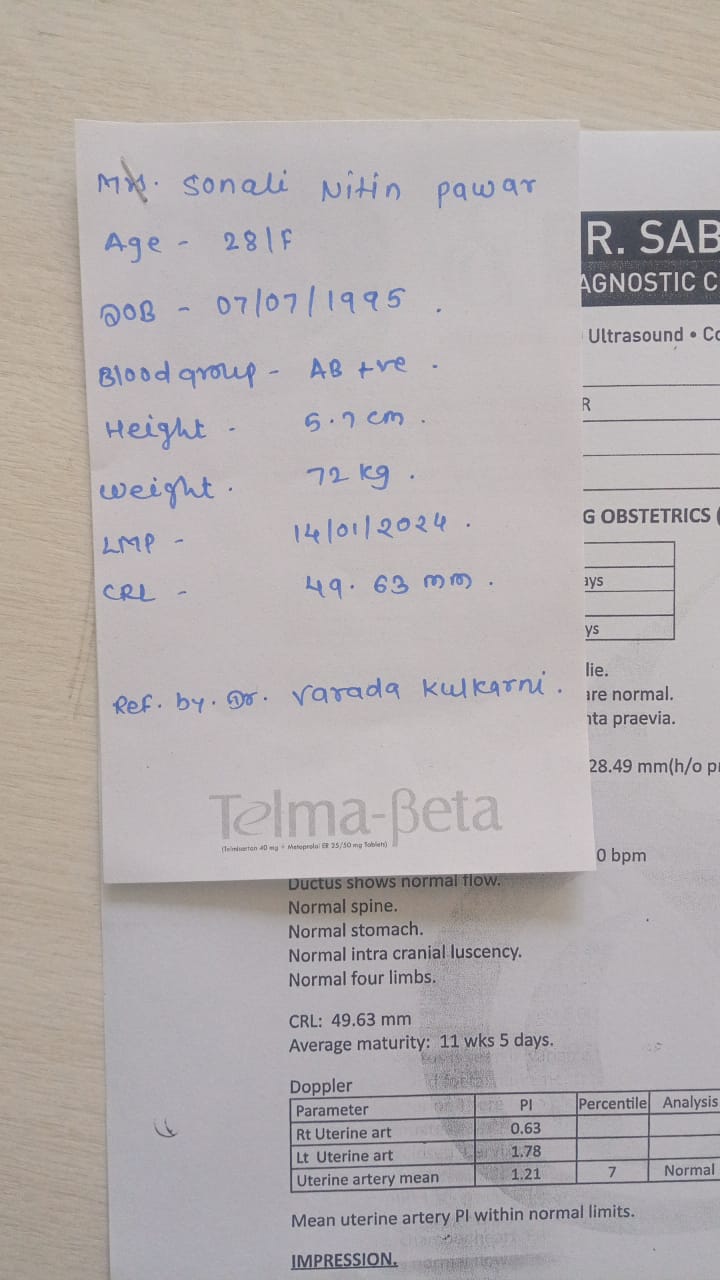 Mrs. Sonali Nitin Pawar
Age - 28/F
DOB - 07/07/1995.
Blood group - AB +ve.
Height - 5.7 cm.
Weight. 72 kg.
LMP - 14/01/2024.
CRL - 49.63 mm.
Ref. by. Dr. Varada Kulkarni.
Telma-Beta
(Telmisartan 40 mg + Metoprolol ER 25/50 mg Tablets)
R. SAB
AGNOSTIC C
Ultrasound • Co
R
G OBSTETRICS (
ays
ys
lie.
are normal.
nta praevia.
28.49 mm(h/o p
0 bpm
Ductus shows normal flow.
Normal spine.
Normal stomach.
Normal intra cranial luscency.
Normal four limbs.
CRL: 49.63 mm
Average maturity: 11 wks 5 days.
Doppler
Parameter PI Percentile Analysis
Rt Uterine art 0.63
Lt Uterine art 1.78
Uterine artery mean 1.21 7 Normal
Mean uterine artery PI within normal limits.
IMPRESSION.